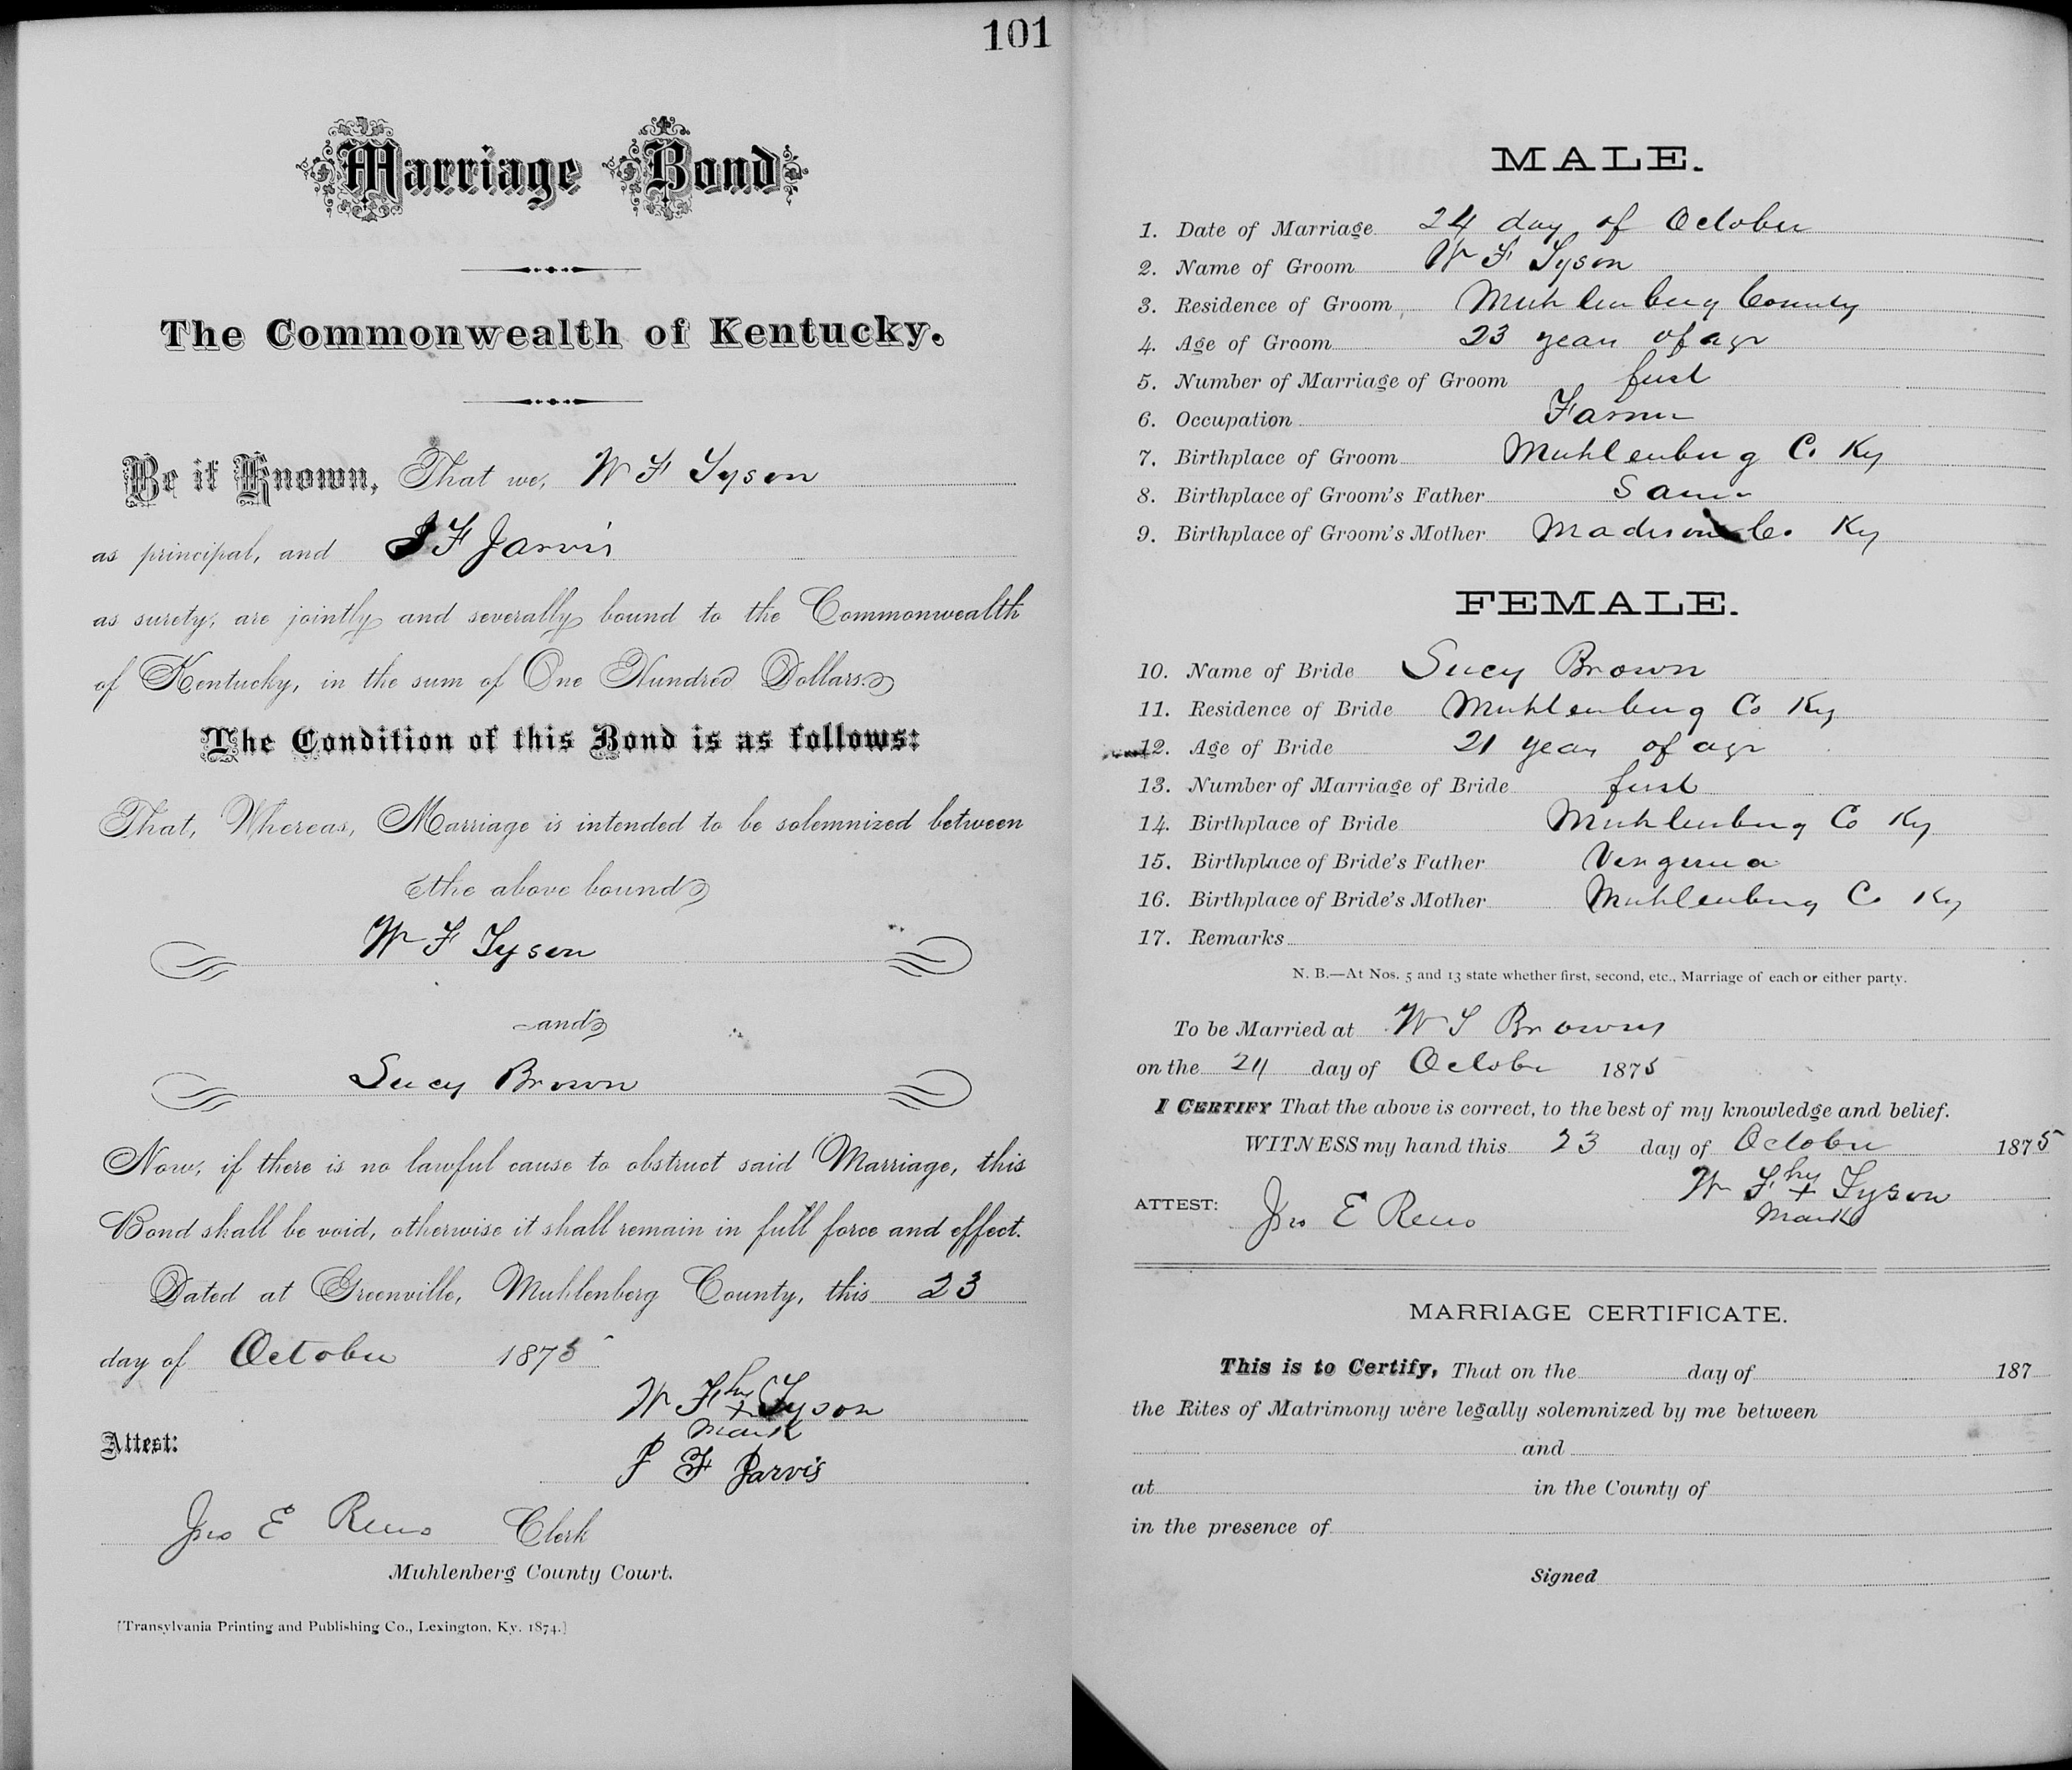 101
Marriage Bond
The Commonwealth of Kentucky.
Be it Known, That we, W F Tyson
as principal, and J F Jarvis
as surety, are jointly and severally bound to the Commonwealth
of Kentucky, in the sum of One Hundred Dollars.
The Condition of this Bond is as follows:
That, Whereas, Marriage is intended to be solemnized between
the above bound
W F Tyson
and
Lucy Brown
Now, if there is no lawful cause to obstruct said Marriage, this
Bond shall be void, otherwise it shall remain in full force and effect.
Dated at Greenville, Muhlenberg County, this 23
day of October 1875
W F his + Tyson
mark
J F Jarvis
Attest:
Jno E Reno Clerk
Muhlenberg County Court.
[Transylvania Printing and Publishing Co., Lexington, Ky. 1874.]
MALE.
1. Date of Marriage 24 day of October
2. Name of Groom W F Tyson
3. Residence of Groom Muhlenburg County
4. Age of Groom 23 years of age
5. Number of Marriage of Groom first
6. Occupation Farmer
7. Birthplace of Groom Muhlenburg C. Ky
8. Birthplace of Groom's Father Same
9. Birthplace of Groom's Mother Madison Co. Ky
FEMALE.
10. Name of Bride Lucy Brown
11. Residence of Bride Muhlenburg Co Ky
12. Age of Bride 21 years of age
13. Number of Marriage of Bride first
14. Birthplace of Bride Muhlenburg Co Ky
15. Birthplace of Bride's Father Vergenia
16. Birthplace of Bride's Mother Muhlenburg C. Ky
17. Remarks
N. B.—At Nos. 5 and 13 state whether first, second, etc., Marriage of each or either party.
To be Married at W S Browns
on the 24 day of October 1875
I CERTIFY That the above is correct, to the best of my knowledge and belief.
WITNESS my hand this 23 day of October 1875
W F his + Tyson
mark
ATTEST: Jno E Reno
MARRIAGE CERTIFICATE.
This is to Certify, That on the day of 187
the Rites of Matrimony were legally solemnized by me between
and
at in the County of
in the presence of
Signed